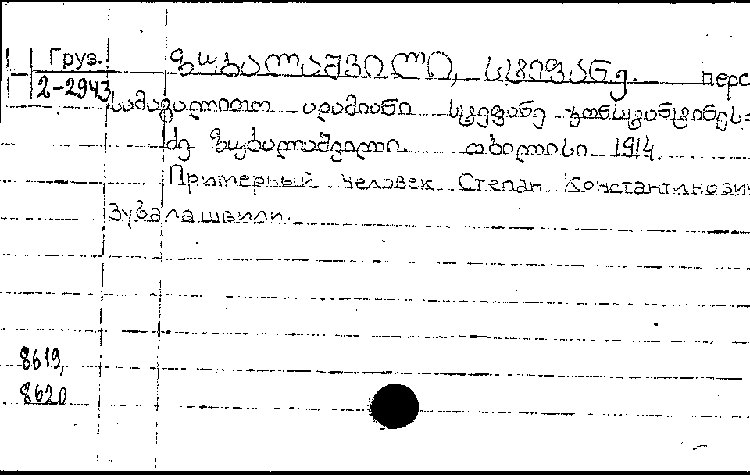 Груз. ზუბალაშვილი, სტეფანე. перс
2-2943 სამაგალითო ადამიანი სტეფანე კონსტანტინეს-
ძე ზუბალაშვილი. თბილისი 1914.
Примерный человек Степан Константинович
Зубалашвили.
8619,
8620